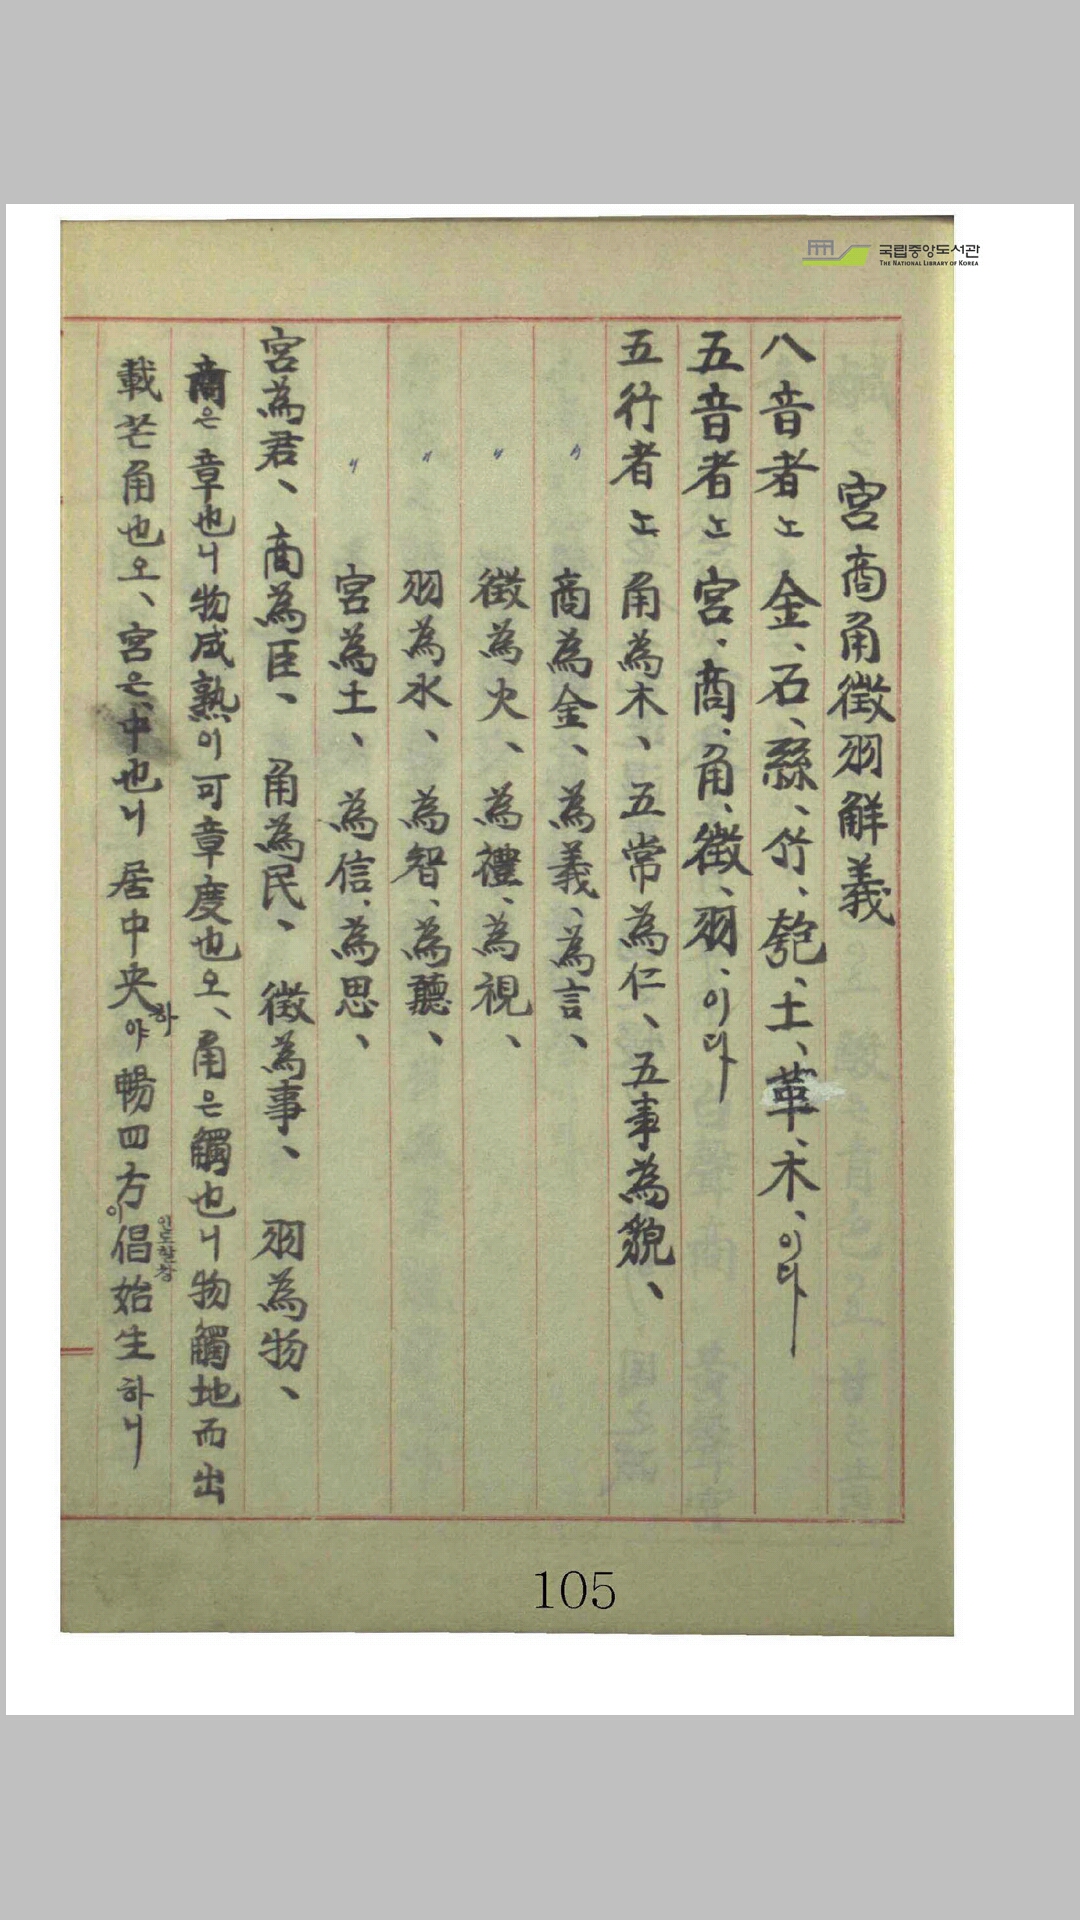 국립중앙도서관
THE NATIONAL LIBRARY OF KOREA
宮商角徵羽解義
八音者는 金、石、絲、竹、匏、土、革、木、이다
五音者는 宮、商、角、徵、羽、이다
五行者는 角為木、五常為仁、五事為貌、
〃 商為金、為義、為言、
〃 徵為火、為禮、為視、
〃 羽為水、為智、為聽、
〃 宮為土、為信、為思、
宮為君、商為臣、角為民、徵為事、羽為物、
商은 章也니 物成熟이 可章度也오、角은 觸也니 物觸地而出
載芒角也오、宮은 中也니 居中央하야 暢四方이 倡始生하니
인도할창
105